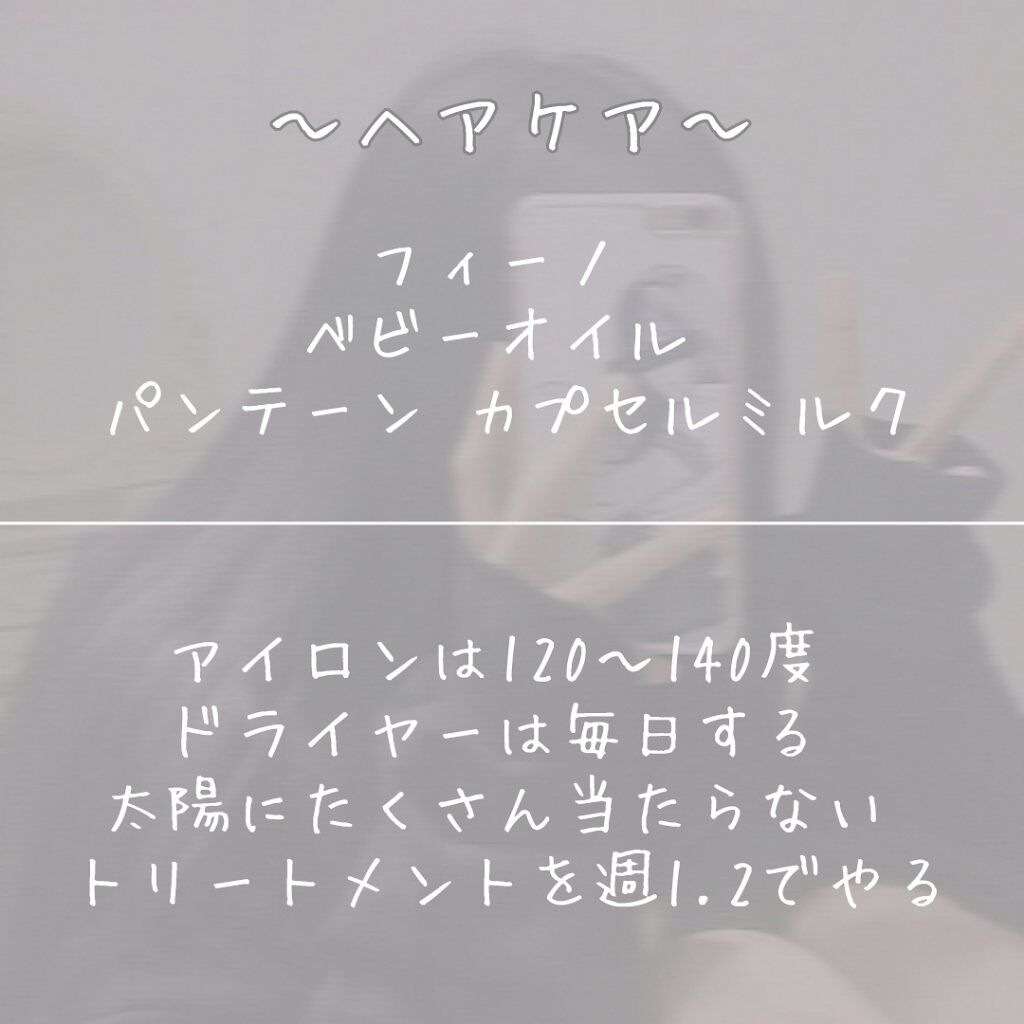 ～ヘアケア～
フィーノ
ベビーオイル
パンテーン カプセルミルク
アイロンは120～140度
ドライヤーは毎日する
太陽にたくさん当たらない
トリートメントを週1.2でやる